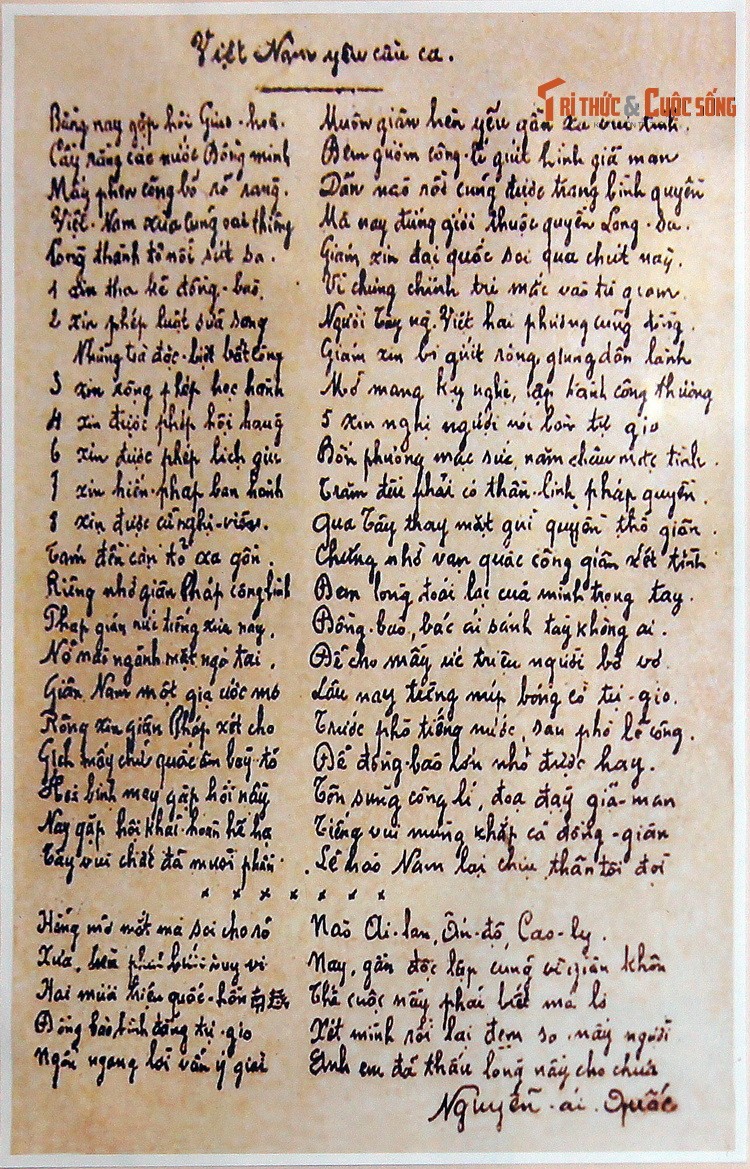 Việt Nam yêu cầu ca.
TRI THỨC & CUỘC SỐNG
Bằng nay gặp hội Giao-hoà. Muôn giân hèn yếu gần xa vui tình.
Cầy rằng các nước Đồng minh Đem gươm công-lí giứt hình giã man
Mấy phen công bố rõ ràng. Dân nào rồi cũng được trang bình quyền
Việt-Nam xưa cũng oai thiêng Mà nay đứng giới thuộc quyền Long-sa.
Lòng thành tỏ nỗi sút sa. Giám xin đại quốc soi qua chút nầy.
1 xin tha kẻ đồng-bào, Vì chưng chính trị mắc vào tù giam.
2 xin phép luật sửa sang Người Tây ng. Việt hai phương cũng đồng.
Những toà đặc-biệt bất công Giám xin bỏ giứt rộng giung dân lành
3 xin rộng phép học hành Mở mang kỹ nghệ, lập thành công thương
4 xin được phép hội hàng 5 xin nghị người nói bàn tự gio
6 xin được phép lịch giu Bốn phương mặc sức, năm châu mặc tình.
7 xin hiến-pháp ban hành Trăm đều phải có thần-linh pháp quyền.
8 xin được cử nghị-viên. Qua Tây thay mặt giải quyền thổ giân.
Tám đều cạn tỏ xa gần. Chứng nhờ vạn quốc công giân xét tình
Riêng nhờ giân Pháp công bình Đem lòng đoái lại của mình trọng tay.
Pháp giân nức tiếng xưa nay, Đồng-bào, bác ái sánh tầy không ai.
Nỡ nào ngảnh mặt ngơ tai, Để cho mấy ức triệu người bơ vơ.
Giân Nam một giạ ước mơ Lâu nay tiếng núp bóng cờ tự-gio.
Rộng xin giân Pháp xét cho Trước phò tiếng nước, sau phò lẽ công.
Gịch mấy chữ quốc âm bầy tỏ Để đồng-bào lớn nhỏ được hay.
Hoà bình may gặp hội nầy Tôn sùng công lí, đoạ đầy giã-man
Nay gặp hội khải-hoàn hỉ hạ Tiếng vui mừng khắp cả đồng-giân
Tây vui chắc đã mười phần. Lẽ nào Nam lại chịu thân tôi đòi
x x x x x x x
Hẵng mở mắt mà soi cho rõ Nào Ai-lan, Ấn-độ, Cao-ly.
Xưa, phải buổi suy vi Nay, gần độc lập cũng vì giân khôn
Hai mươi triệu quốc-hồn 南越 Thế cuộc nầy phải biết mà lo
Đồng bào bình đẳng tự-gio Xét mình rồi lại đem so mấy người
Ngổn ngang lời vắn ý giài Anh em đã thấu lòng nầy cho chưa
Nguyễn-ái-Quốc